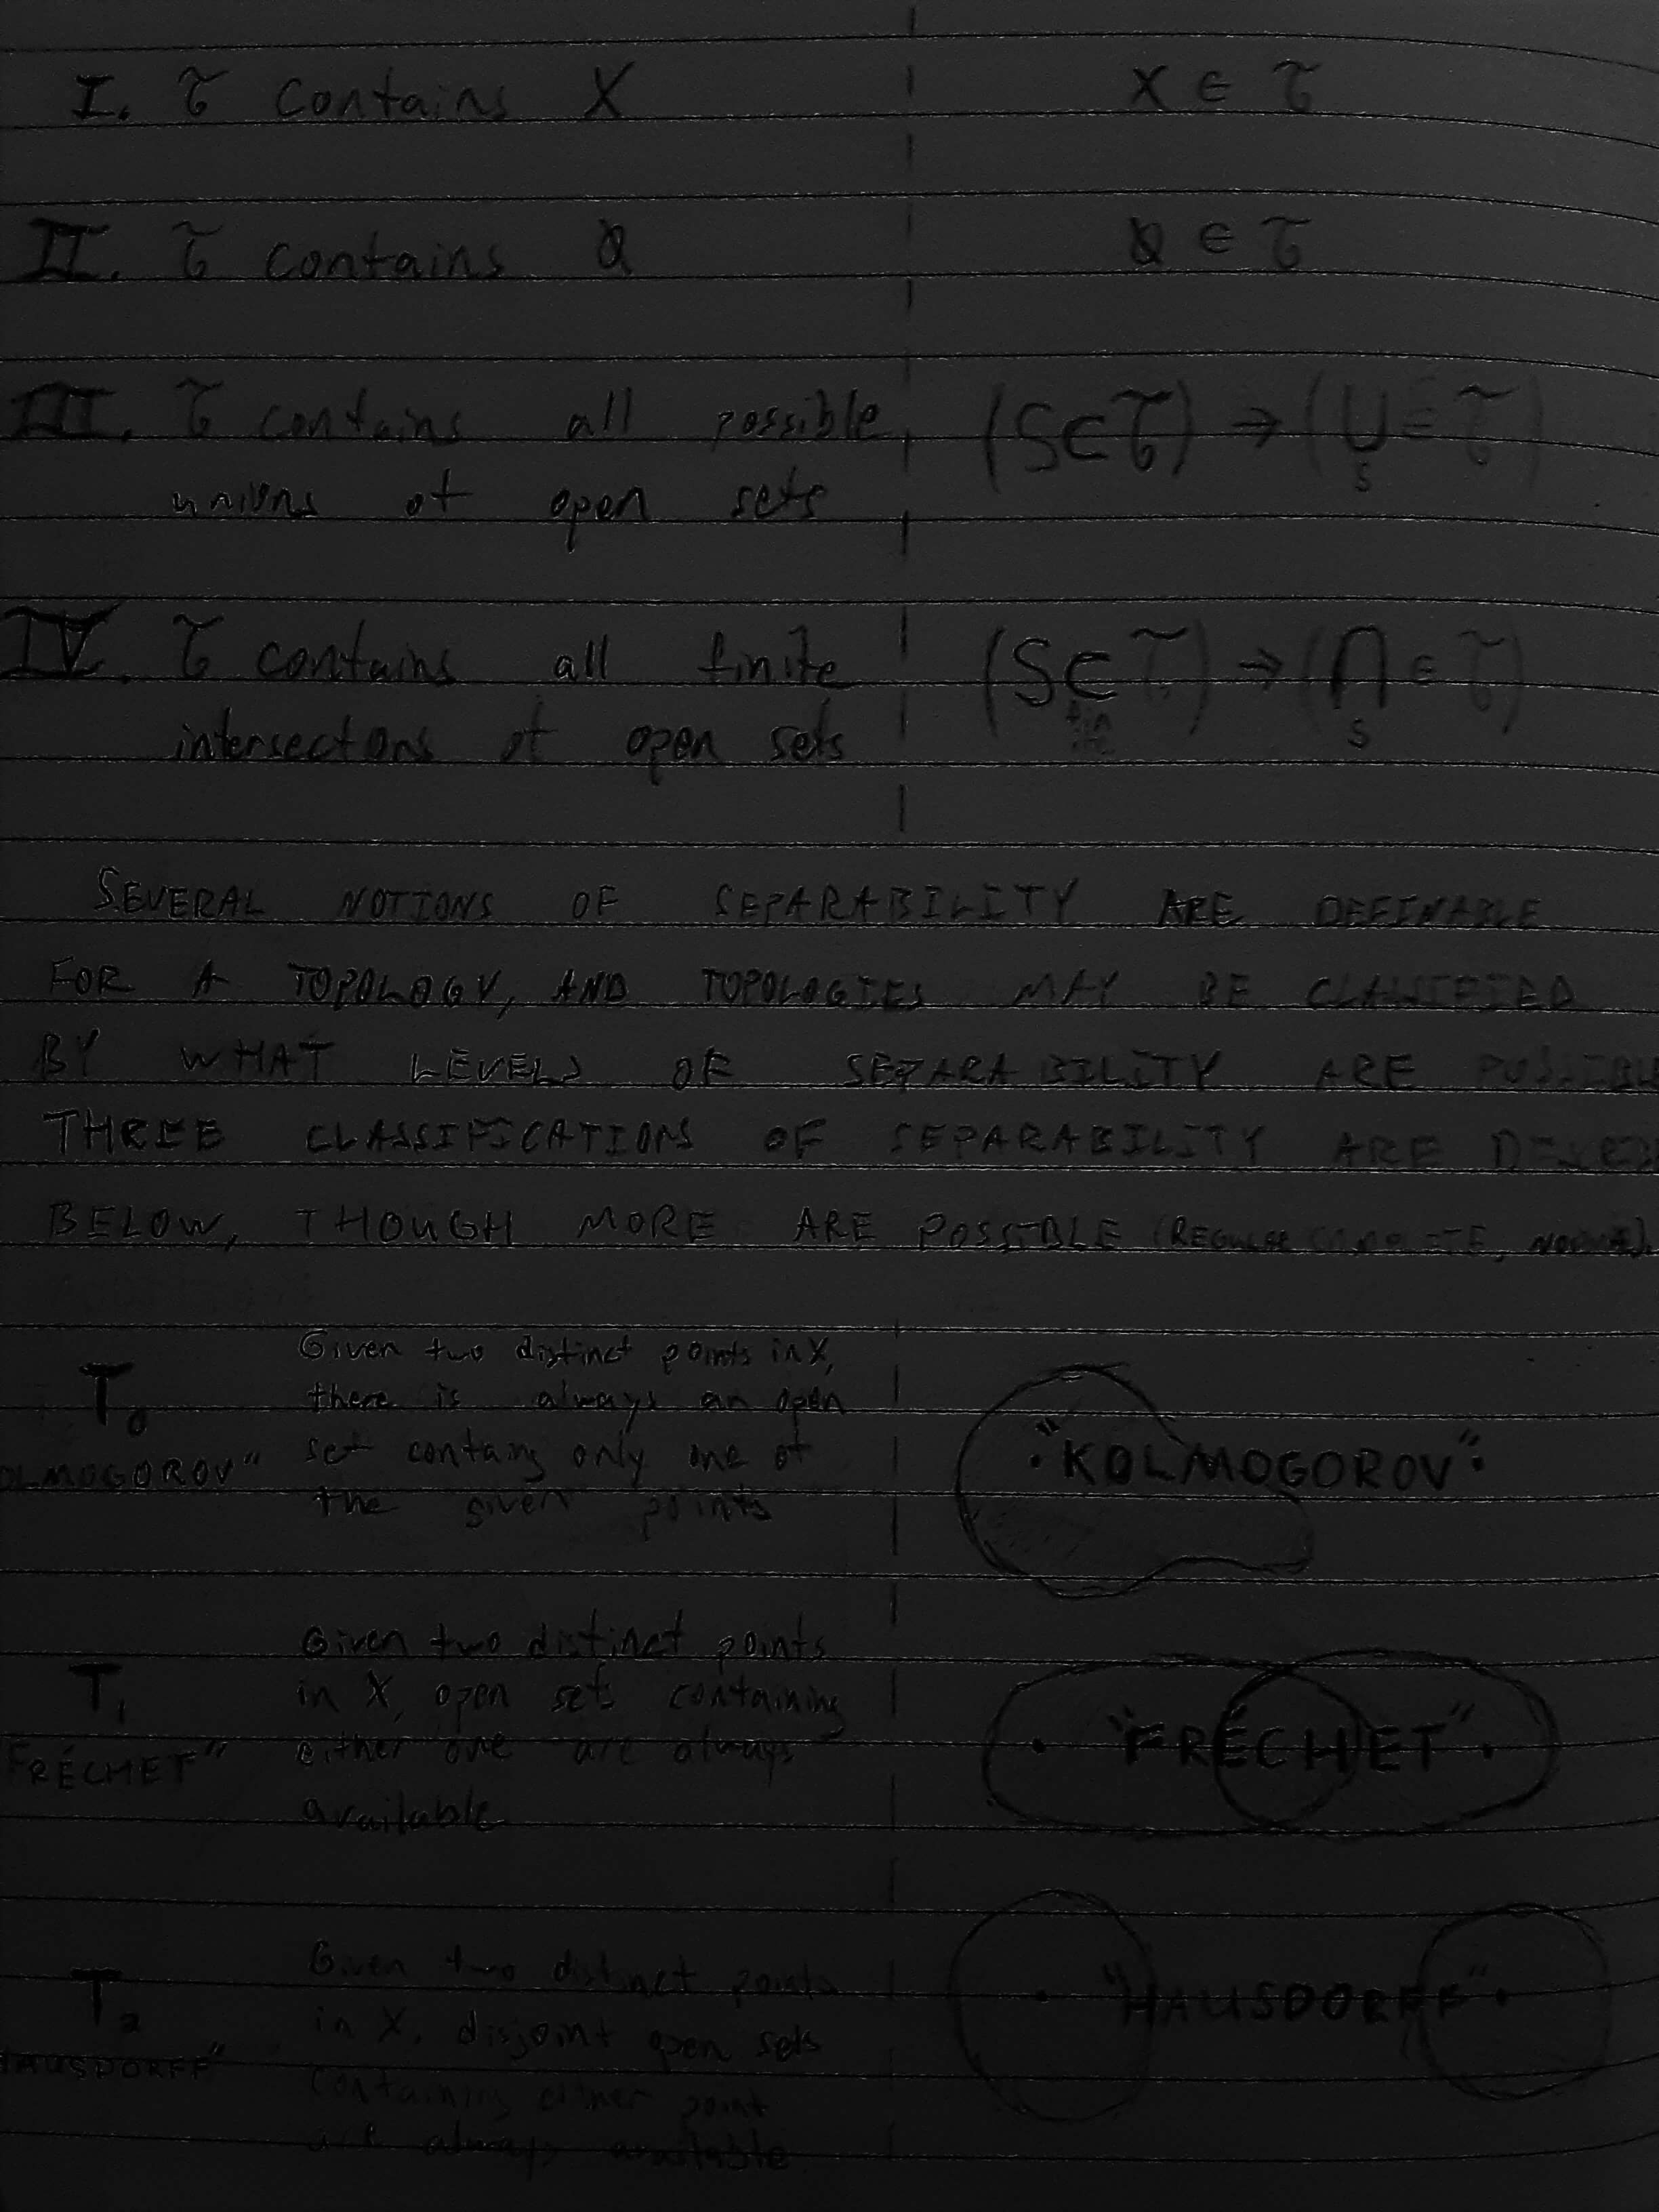 I. τ contains X X ∈ τ
II. τ contains ∅ ∅ ∈ τ
III. τ contains all possible (S⊂τ) → (⋃ ∈ τ)
S
unions of open sets
IV. τ contains all finite (S⊂τ) → (⋂ ∈ τ)
finite S
intersections of open sets
SEVERAL NOTIONS OF SEPARABILITY ARE DEFINABLE
FOR A TOPOLOGY, AND TOPOLOGIES MAY BE CLASSIFIED
BY WHAT LEVELS OF SEPARABILITY ARE POSSIBLE
THREE CLASSIFICATIONS OF SEPARABILITY ARE
BELOW, THOUGH MORE ARE POSSIBLE (REGULAR
T₀
OLMOGOROV"
Given two distinct points in X,
there is always an open
set containg only one of
the given points
"KOLMOGOROV"
T₁
FRÉCHET"
Given two distinct points
in X, open sets containing
either one are always
available
"FRÉCHET"
T₂
AUSDORFF"
Given two distinct points
in X, disjoint open sets
containing either point
are always available
"HAUSDORFF"